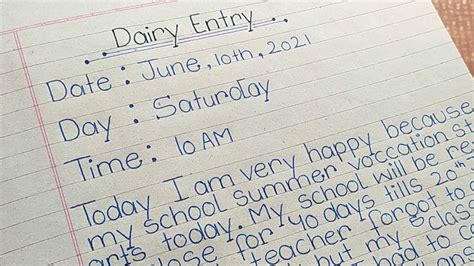 Dairy Entry
Date : June, 10th, 2021
Day : Saturday
Time : 10 AM
Today I am very happy because
my school summer voccation st
arts today. My school will be re
ose for 40 days tills 20th
teacher forgot to
but my class
had to co